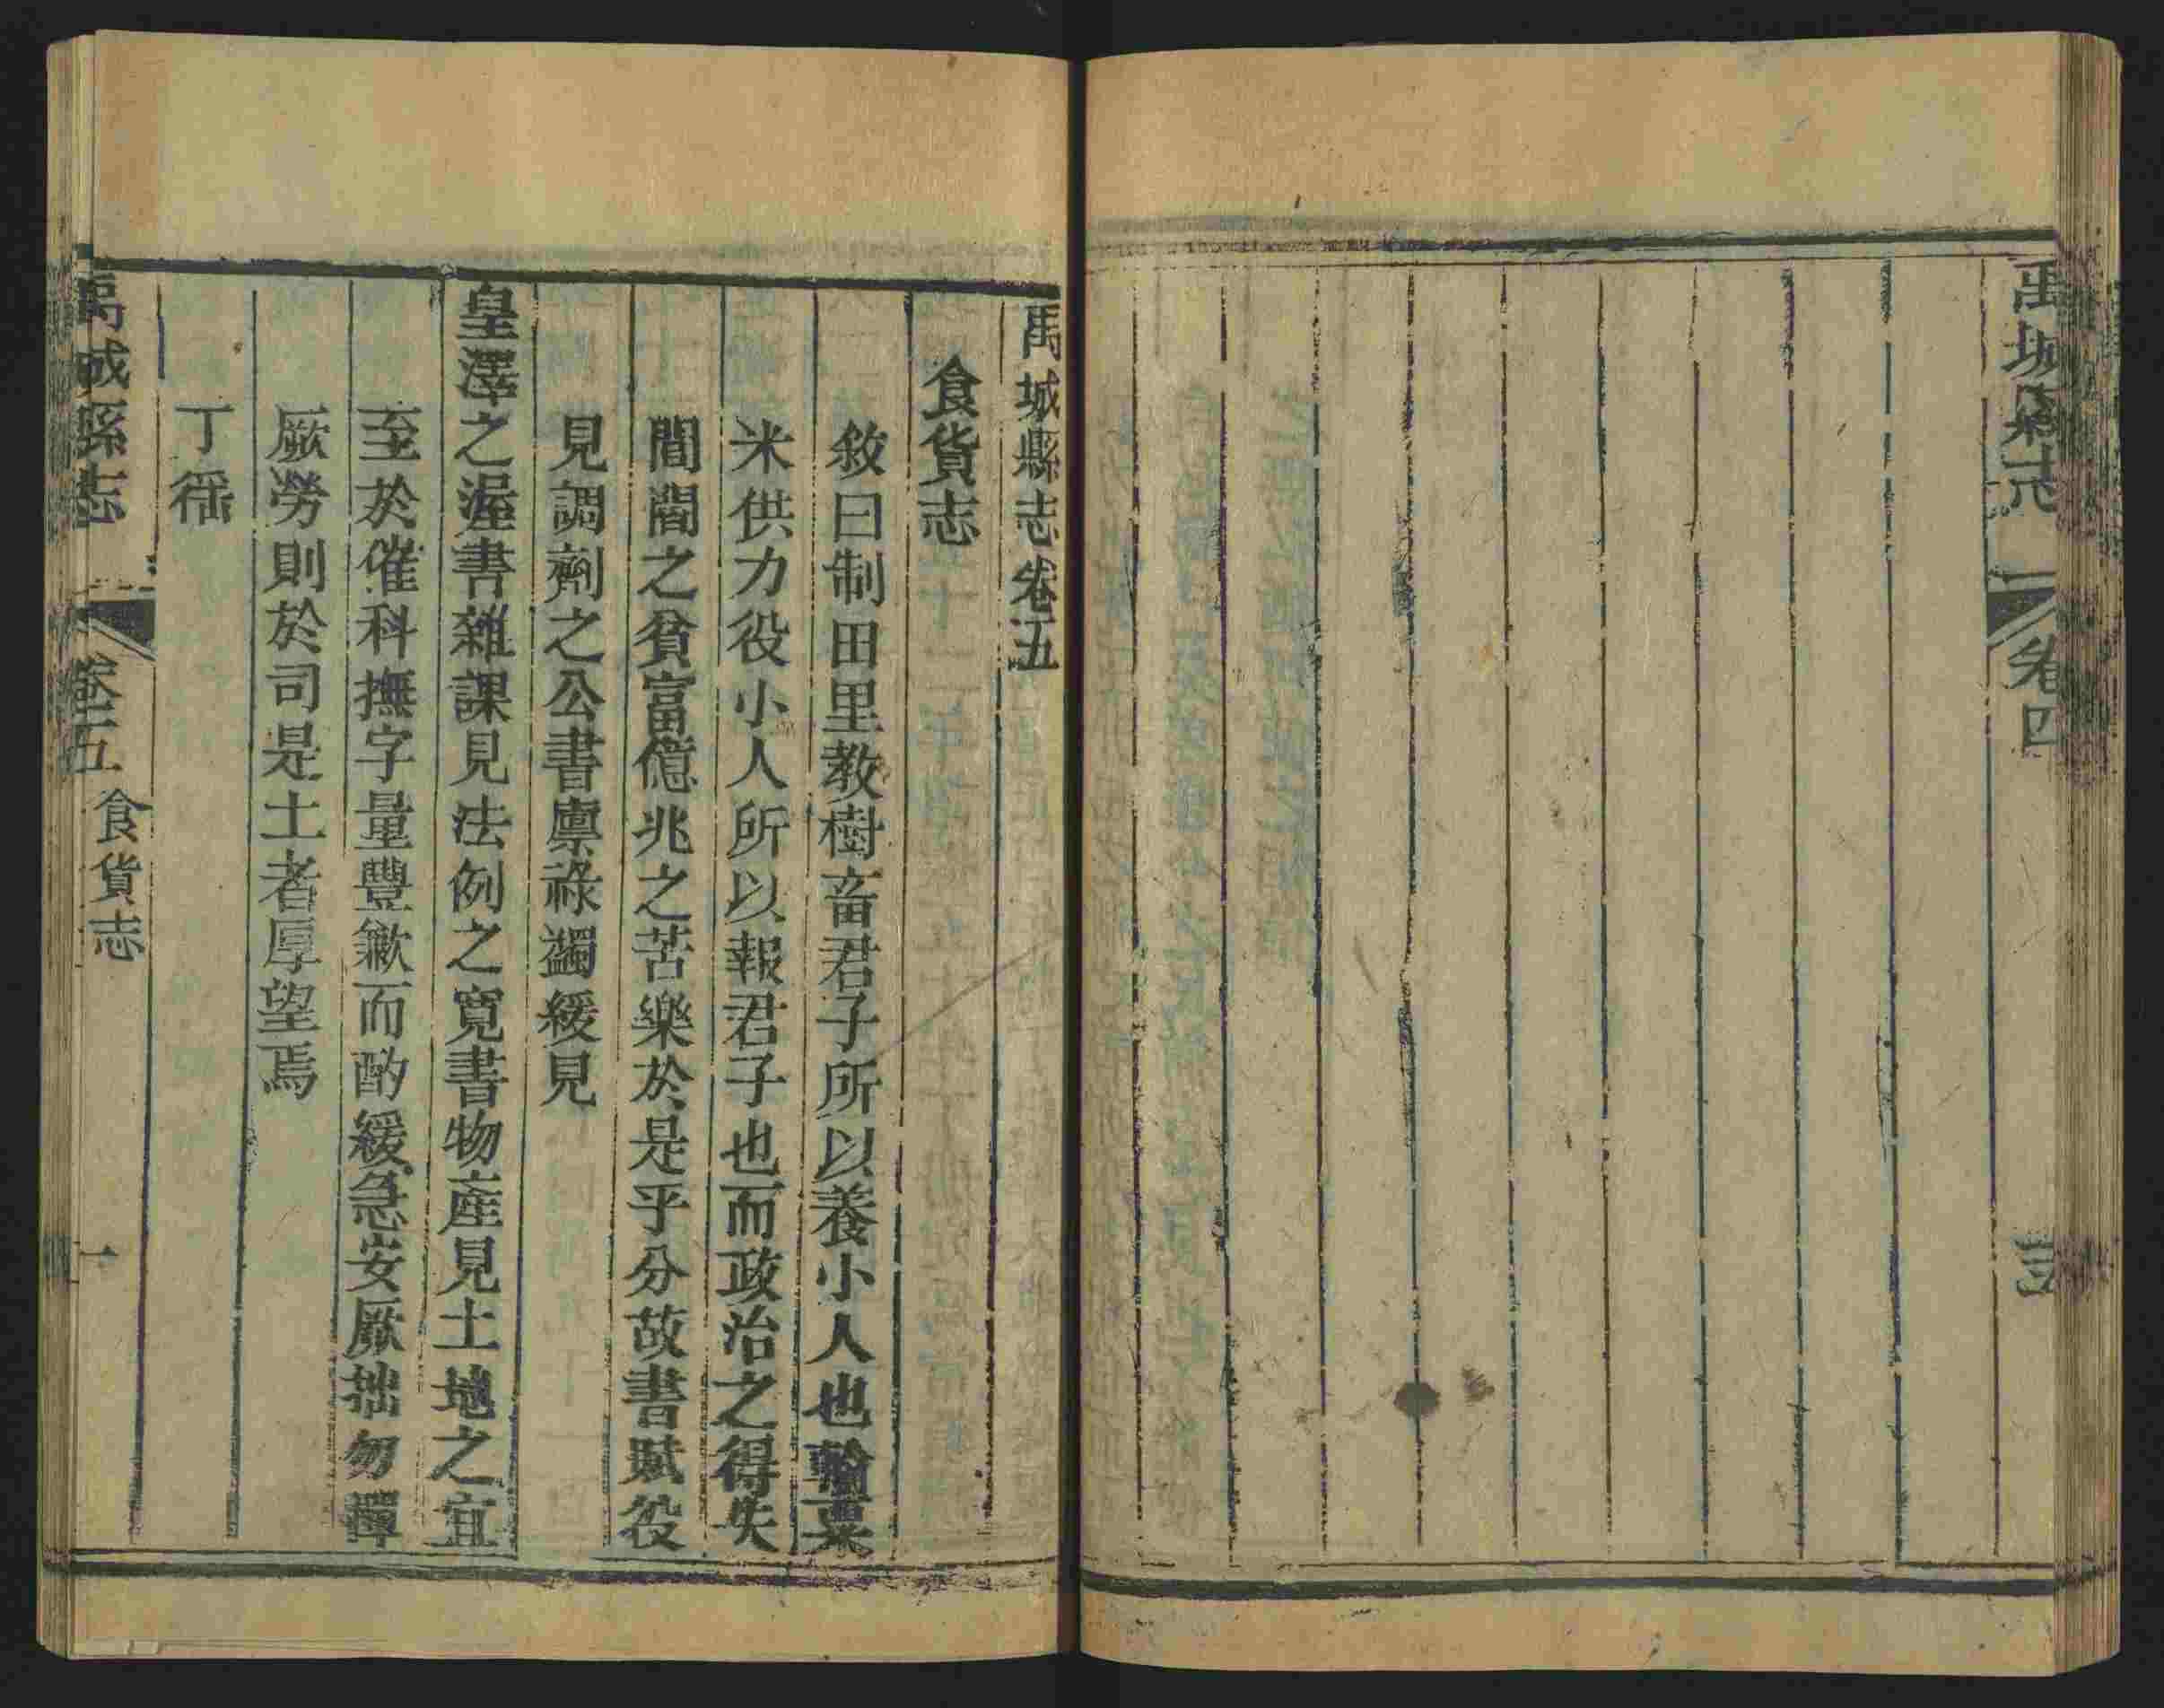 禹城縣志
卷四
禹城縣志卷五
食貨志
敘曰制田里教樹畜君子所以養小人也輸粟
米供力役小人所以報君子也而政治之得失
閭閻之貧富億兆之苦樂於是乎分故書賦役
見調劑之公書廪祿蠲緩見
皇澤之渥書雜課見法例之寬書物產見土地之宜
至於催科撫字量豐歉而酌緩急安厥拙勿憚
厥勞則於司是土者厚望焉
丁徭
禹城縣志
卷五
食貨志
一